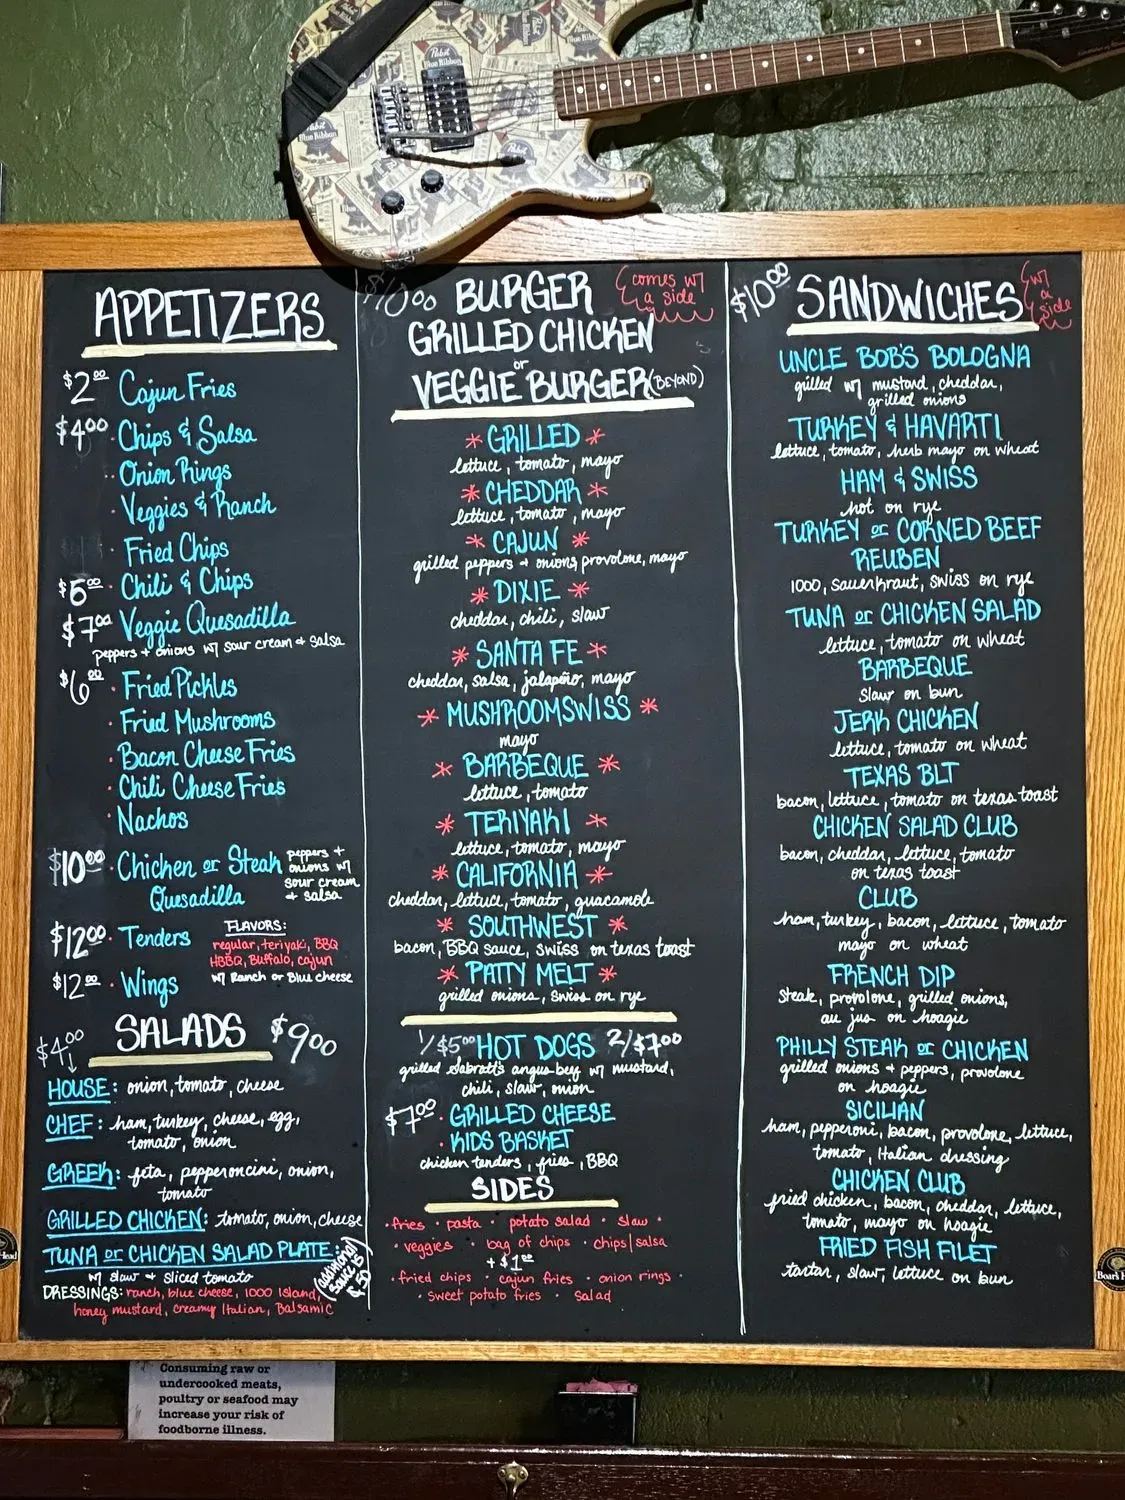 Pabst
Blue Ribbon
APPETIZERS
$2.00 Cajun Fries
$4.00 · Chips & Salsa
· Onion Rings
· Veggies & Ranch
· Fried Chips
$5.00 · Chili & Chips
$7.00 Veggie Quesadilla
peppers + onions w/ sour cream + salsa
$6.00 · Fried Pickles
· Fried Mushrooms
· Bacon Cheese Fries
· Chili Cheese Fries
· Nachos
$10.00 · Chicken or Steak
Quesadilla
peppers +
onions w/
sour cream
+ salsa
$12.00 · Tenders
$12.00 · Wings
FLAVORS:
regular, teriyaki, BBQ
HBBQ, Buffalo, cajun
w/ Ranch or Blue cheese
$4.00
SALADS $9.00
HOUSE: onion, tomato, cheese
CHEF: ham, turkey, cheese, egg,
tomato, onion
GREEK: feta, pepperoncini, onion,
tomato
GRILLED CHICKEN: tomato, onion, cheese
TUNA or CHICKEN SALAD PLATE:
w/ slaw + sliced tomato
DRESSINGS: ranch, blue cheese, 1000 Island,
honey mustard, creamy Italian, Balsamic
(additional
sauce is
$.50)
$10.00 BURGER
comes w/
a side
GRILLED CHICKEN
or
VEGGIE BURGER (BEYOND)
* GRILLED *
lettuce, tomato, mayo
* CHEDDAR *
lettuce, tomato, mayo
* CAJUN *
grilled peppers + onions, provolone, mayo
* DIXIE *
cheddar, chili, slaw
* SANTA FE *
cheddar, salsa, jalapeño, mayo
* MUSHROOMSWISS *
mayo
* BARBEQUE *
lettuce, tomato
* TERIYAKI *
lettuce, tomato, mayo
* CALIFORNIA *
cheddar, lettuce, tomato, guacamole
* SOUTHWEST *
bacon, BBQ sauce, swiss on texas toast
* PATTY MELT *
grilled onions, swiss on rye
1/$5.00 HOT DOGS 2/$7.00
grilled Sabrett's angus beef w/ mustard,
chili, slaw, onion
$7.00 · GRILLED CHEESE
· KIDS BASKET
chicken tenders, fries, BBQ
SIDES
· fries · pasta · potato salad · slaw ·
· veggies · bag of chips · chips/salsa
+ $1.00
· fried chips · cajun fries · onion rings ·
· sweet potato fries · salad
$10.00 SANDWICHES
w/
a
side
UNCLE BOB'S BOLOGNA
grilled w/ mustard, cheddar,
grilled onions
TURKEY & HAVARTI
lettuce, tomato, herb mayo on wheat
HAM & SWISS
hot on rye
TURKEY or CORNED BEEF
REUBEN
1000, sauerkraut, swiss on rye
TUNA or CHICKEN SALAD
lettuce, tomato on wheat
BARBEQUE
slaw on bun
JERK CHICKEN
lettuce, tomato on wheat
TEXAS BLT
bacon, lettuce, tomato on texas toast
CHICKEN SALAD CLUB
bacon, cheddar, lettuce, tomato
on texas toast
CLUB
ham, turkey, bacon, lettuce, tomato
mayo on wheat
FRENCH DIP
steak, provolone, grilled onions,
au jus on hoagie
PHILLY STEAK or CHICKEN
grilled onions + peppers, provolone
on hoagie
SICILIAN
ham, pepperoni, bacon, provolone, lettuce,
tomato, Italian dressing
CHICKEN CLUB
fried chicken, bacon, cheddar, lettuce,
tomato, mayo on hoagie
FRIED FISH FILET
tartar, slaw, lettuce on bun
Head
Boar's
Consuming raw or
undercooked meats,
poultry or seafood may
increase your risk of
foodborne illness.